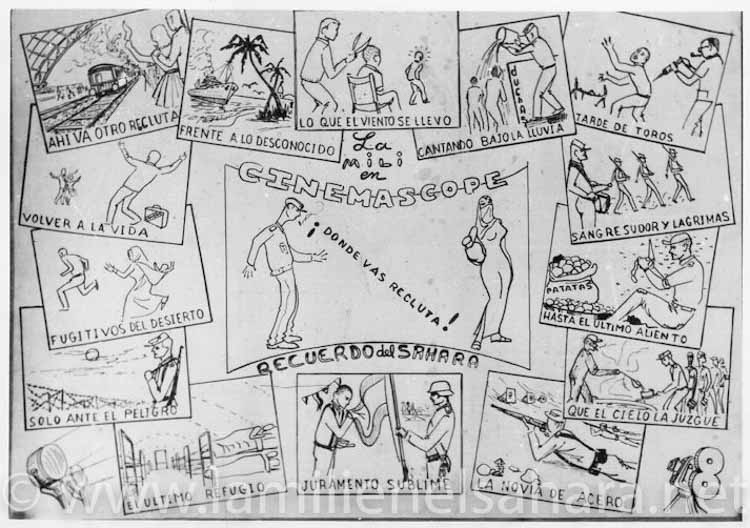 AHI VA OTRO RECLUTA
FRENTE A LO DESCONOCIDO
LO QUE EL VIENTO SE LLEVO
DUCHAS
CANTANDO BAJO LA LLUVIA
TARDE DE TOROS
La
mili
en
CINEMASCOPE
VOLVER A LA VIDA
SANGRE SUDOR Y LAGRIMAS
¡DONDE VAS RECLUTA!
FUGITIVOS DEL DESIERTO
PATATAS
HASTA EL ULTIMO ALIENTO
RECUERDO del SAHARA
SOLO ANTE EL PELIGRO
QUE EL CIELO LA JUZGUE
EL ULTIMO REFUGIO
JURAMENTO SUBLIME
LA NOVIA DE ACERO
© www.lamilienelsahara.net